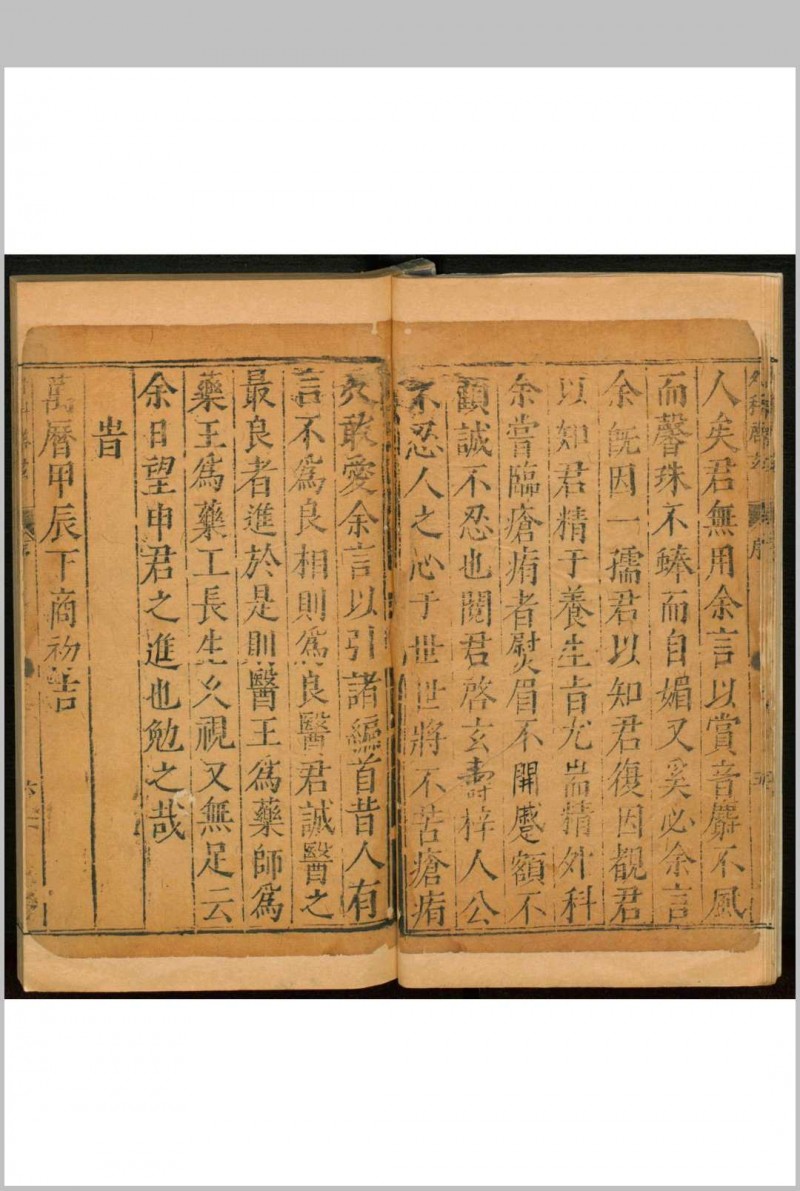 人矣君無用余言以賞音麝不風
而馨珠不蜯而自媚又奚必余言
余旣因一孺君以知君復因覩君
以知君精于養生肯尤耑精外科
余嘗臨瘡痏者熨眉不開蹙額不
顧誠不忍也閱君啓玄壽梓人公
不忍人之心于世世將不苦瘡痏
矣敢愛余言以引諸編首昔人有
言不爲良相則爲良醫君誠醫之
最良者進於是則醫王爲藥師爲
藥王爲藥工長生久視又無足云
余日望申君之進也勉之哉
旹
萬曆甲辰下商初吉